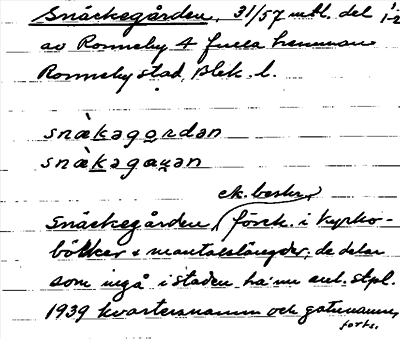 Snäckegården, 31/57 mtl. del 1-2
av Ronneby 4 furca hemman
Ronneby stad, Blek. l.
snækəgo̱rdən
snækəga̱u̯ən
ek. beskr.,
Snäckegården, förek. i kyrko-
böcker & mantalslängder, de delar
som ingå i staden ha nu enl. stpl.
1939 kvartersnamn och gatunamn,
forts.